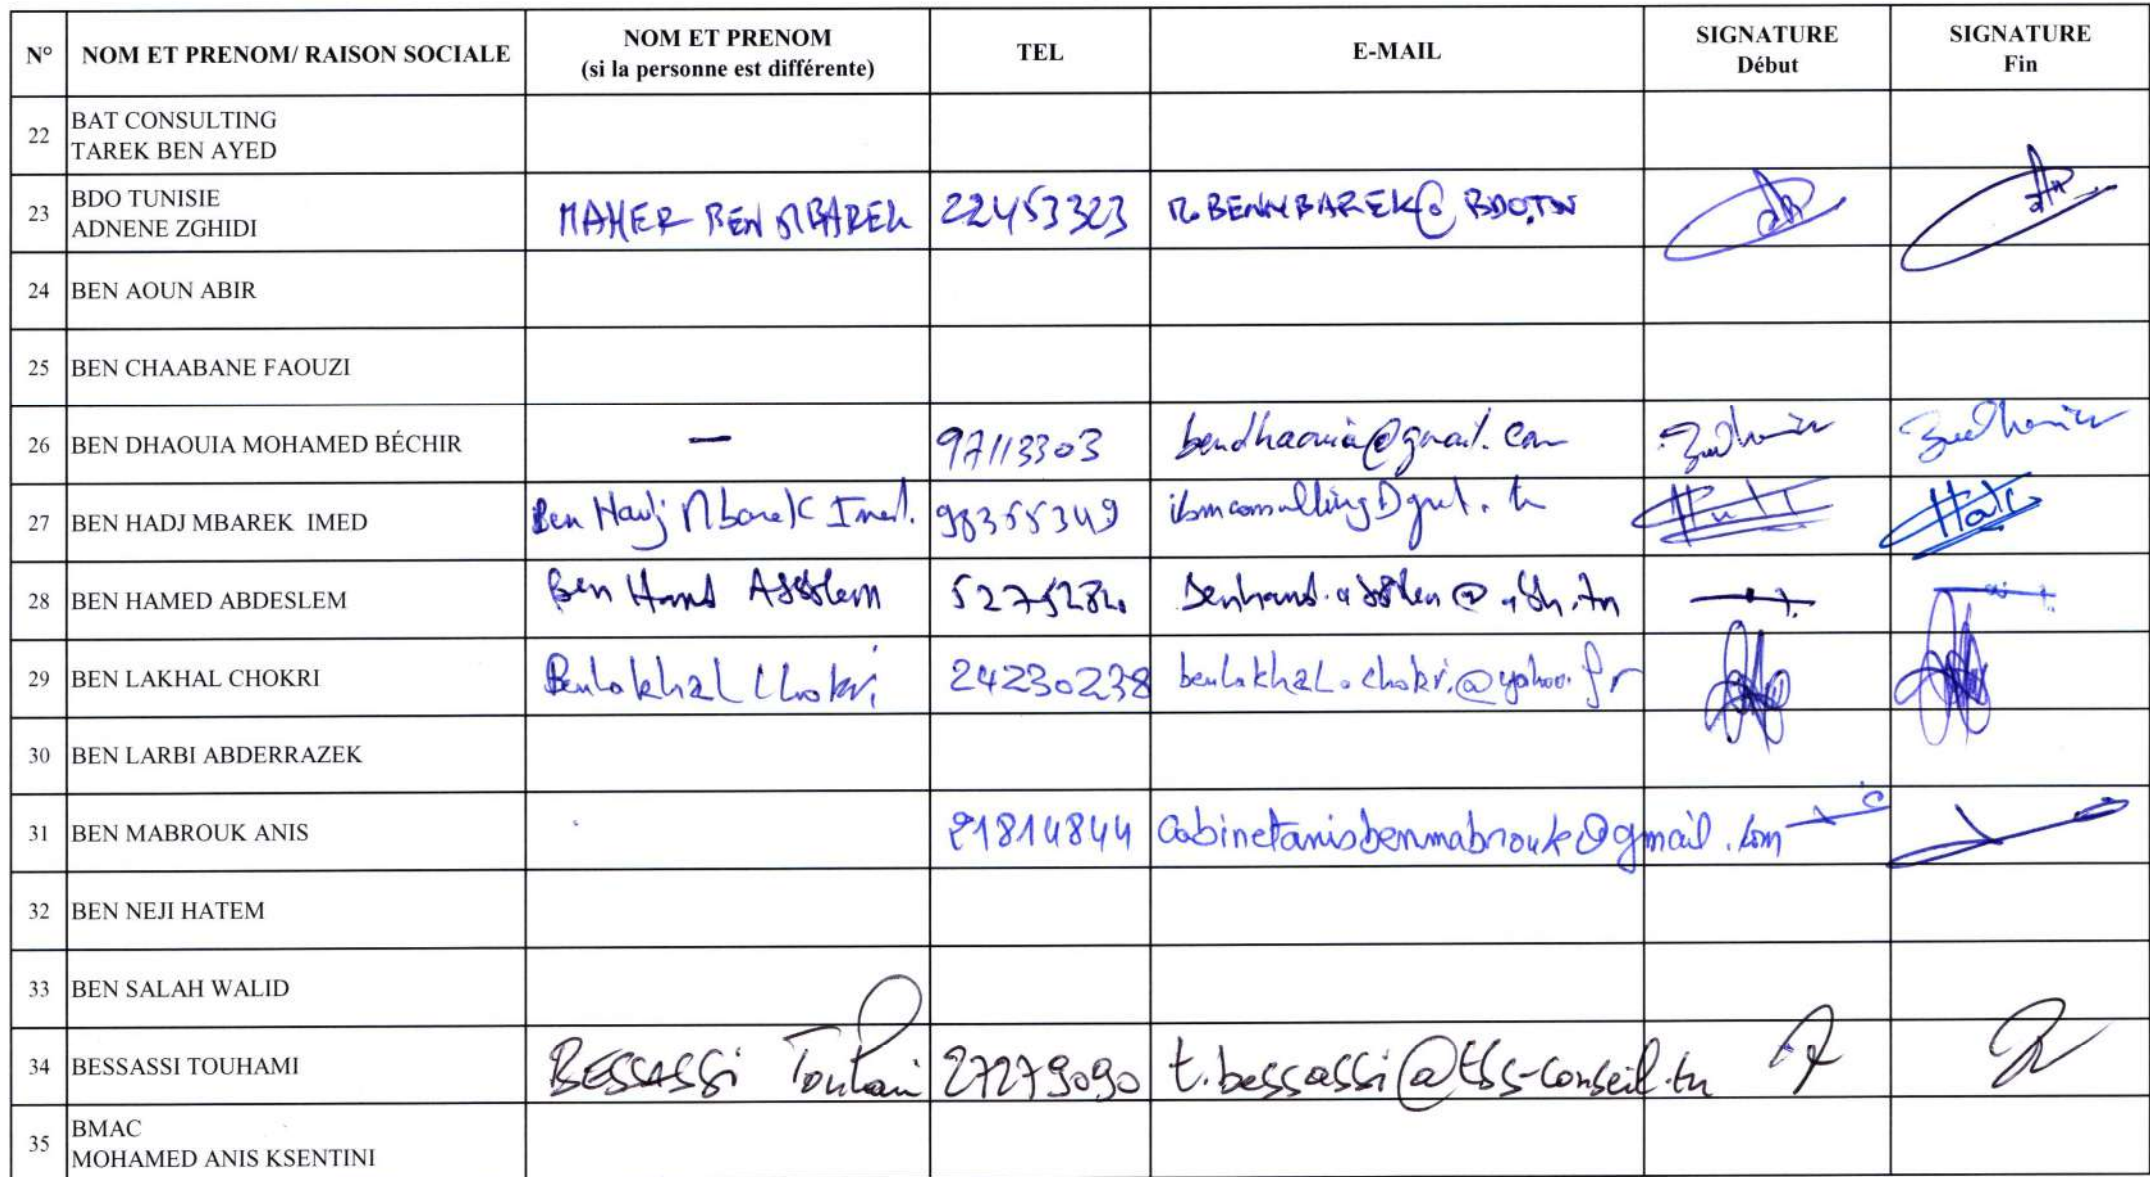 N° NOM ET PRENOM/ RAISON SOCIALE NOM ET PRENOM (si la personne est différente) TEL E-MAIL SIGNATURE Début SIGNATURE Fin
22 BAT CONSULTING
TAREK BEN AYED
23 BDO TUNISIE
ADNENE ZGHIDI
MAHER BEN MBAREK 22453323 M.BENMBAREK@BDO.TN
24 BEN AOUN ABIR
25 BEN CHAABANE FAOUZI
26 BEN DHAOUIA MOHAMED BÉCHIR — 97113303 bendhaouia@gmail.com
27 BEN HADJ MBAREK IMED Ben Hadj Mbarek Imed. 98355349
28 BEN HAMED ABDESLEM Ben Hamed
29 BEN LAKHAL CHOKRI Benlakhal Chokri 24230238 benlakhal.chokri@yahoo.fr
30 BEN LARBI ABDERRAZEK
31 BEN MABROUK ANIS 21814844 cabinetanisbenmabrouk@gmail.com
32 BEN NEJI HATEM
33 BEN SALAH WALID
34 BESSASSI TOUHAMI BESSASSI Touhami 27279090 t.bessassi@tbs-conseil.tn
35 BMAC
MOHAMED ANIS KSENTINI